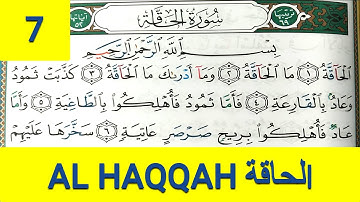 7
سُورَةُ الْحَاقَّةِ
بِسْمِ اللَّهِ الرَّحْمَٰنِ الرَّحِيمِ
الْحَاقَّةُ ۝١ مَا الْحَاقَّةُ ۝٢ وَمَا أَدْرَىٰكَ مَا الْحَاقَّةُ ۝٣ كَذَّبَتْ ثَمُودُ
وَعَادٌ بِالْقَارِعَةِ ۝٤ فَأَمَّا ثَمُودُ فَأُهْلِكُوا بِالطَّاغِيَةِ ۝٥ وَأَمَّا
عَادٌ فَأُهْلِكُوا بِرِيحٍ صَرْصَرٍ عَاتِيَةٍ ۝٦ سَخَّرَهَا عَلَيْهِمْ
AL HAQQAH الحاقة